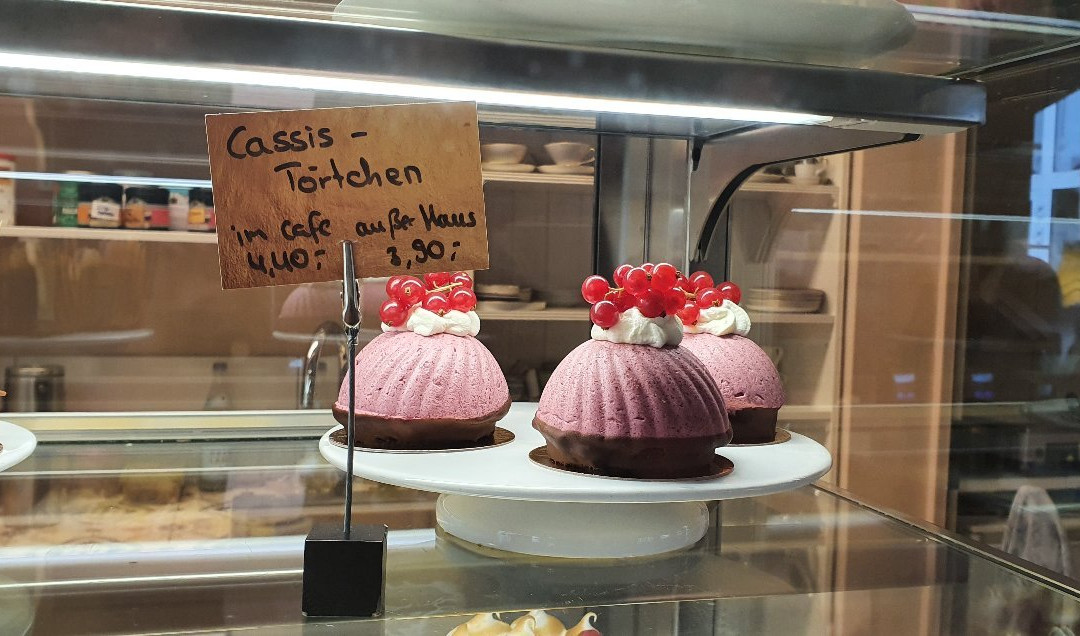 Cassis -
Törtchen
im cafe außer Haus
4,40,- 3,90,-